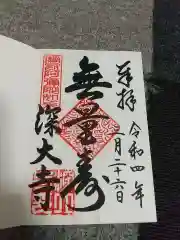 奉拝
令和四年
二月二十六日
無量寿
深大寺